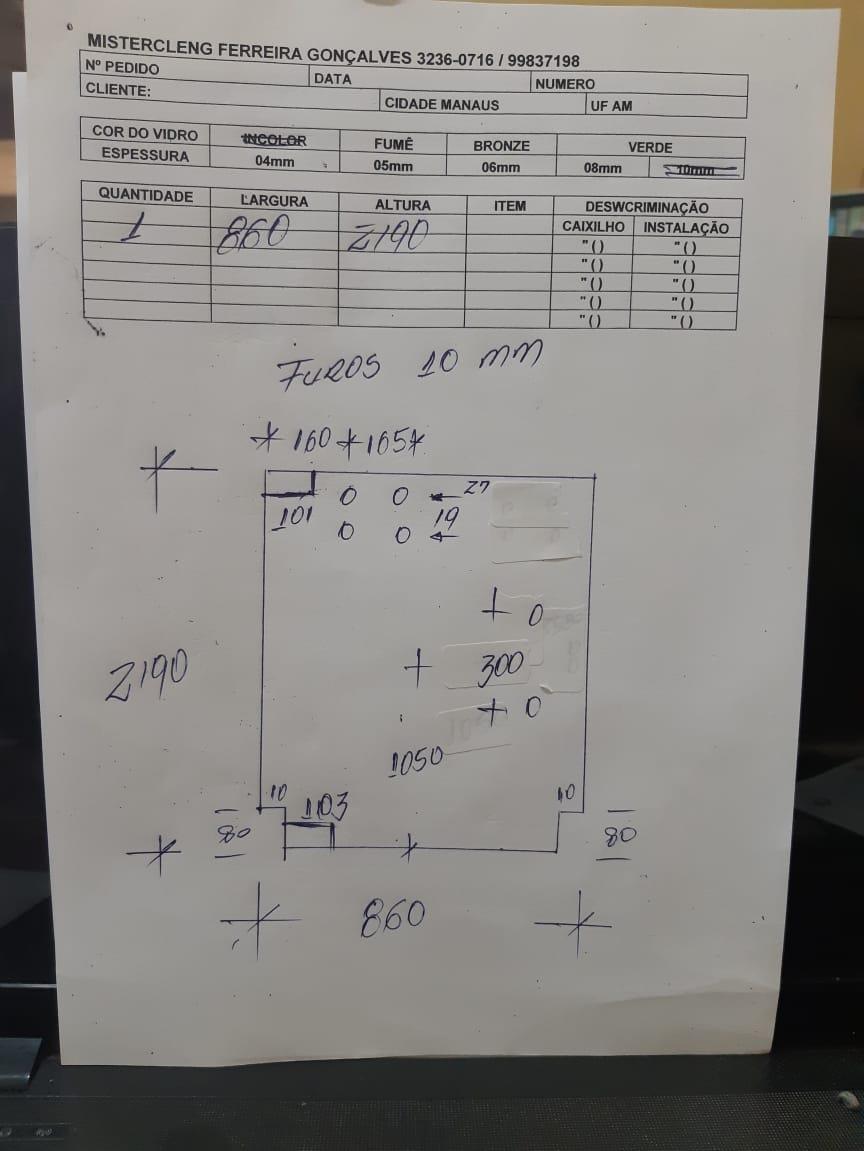 MISTERCLENG FERREIRA GONÇALVES 3236-0716 / 99837198
Nº PEDIDO DATA NUMERO
CLIENTE: CIDADE MANAUS UF AM
COR DO VIDRO INCOLOR FUMÊ BRONZE VERDE
ESPESSURA 04mm 05mm 06mm 08mm 10mm
QUANTIDADE LARGURA ALTURA ITEM DESWCRIMINAÇÃO
CAIXILHO INSTALAÇÃO
1 860 2190 "() "()
"() "()
"() "()
"() "()
"() "()
FUROS 10 mm
160 165
27
101 0 0 19
0 0
0
2190 300
0
1050
10 10
103
80 80
860